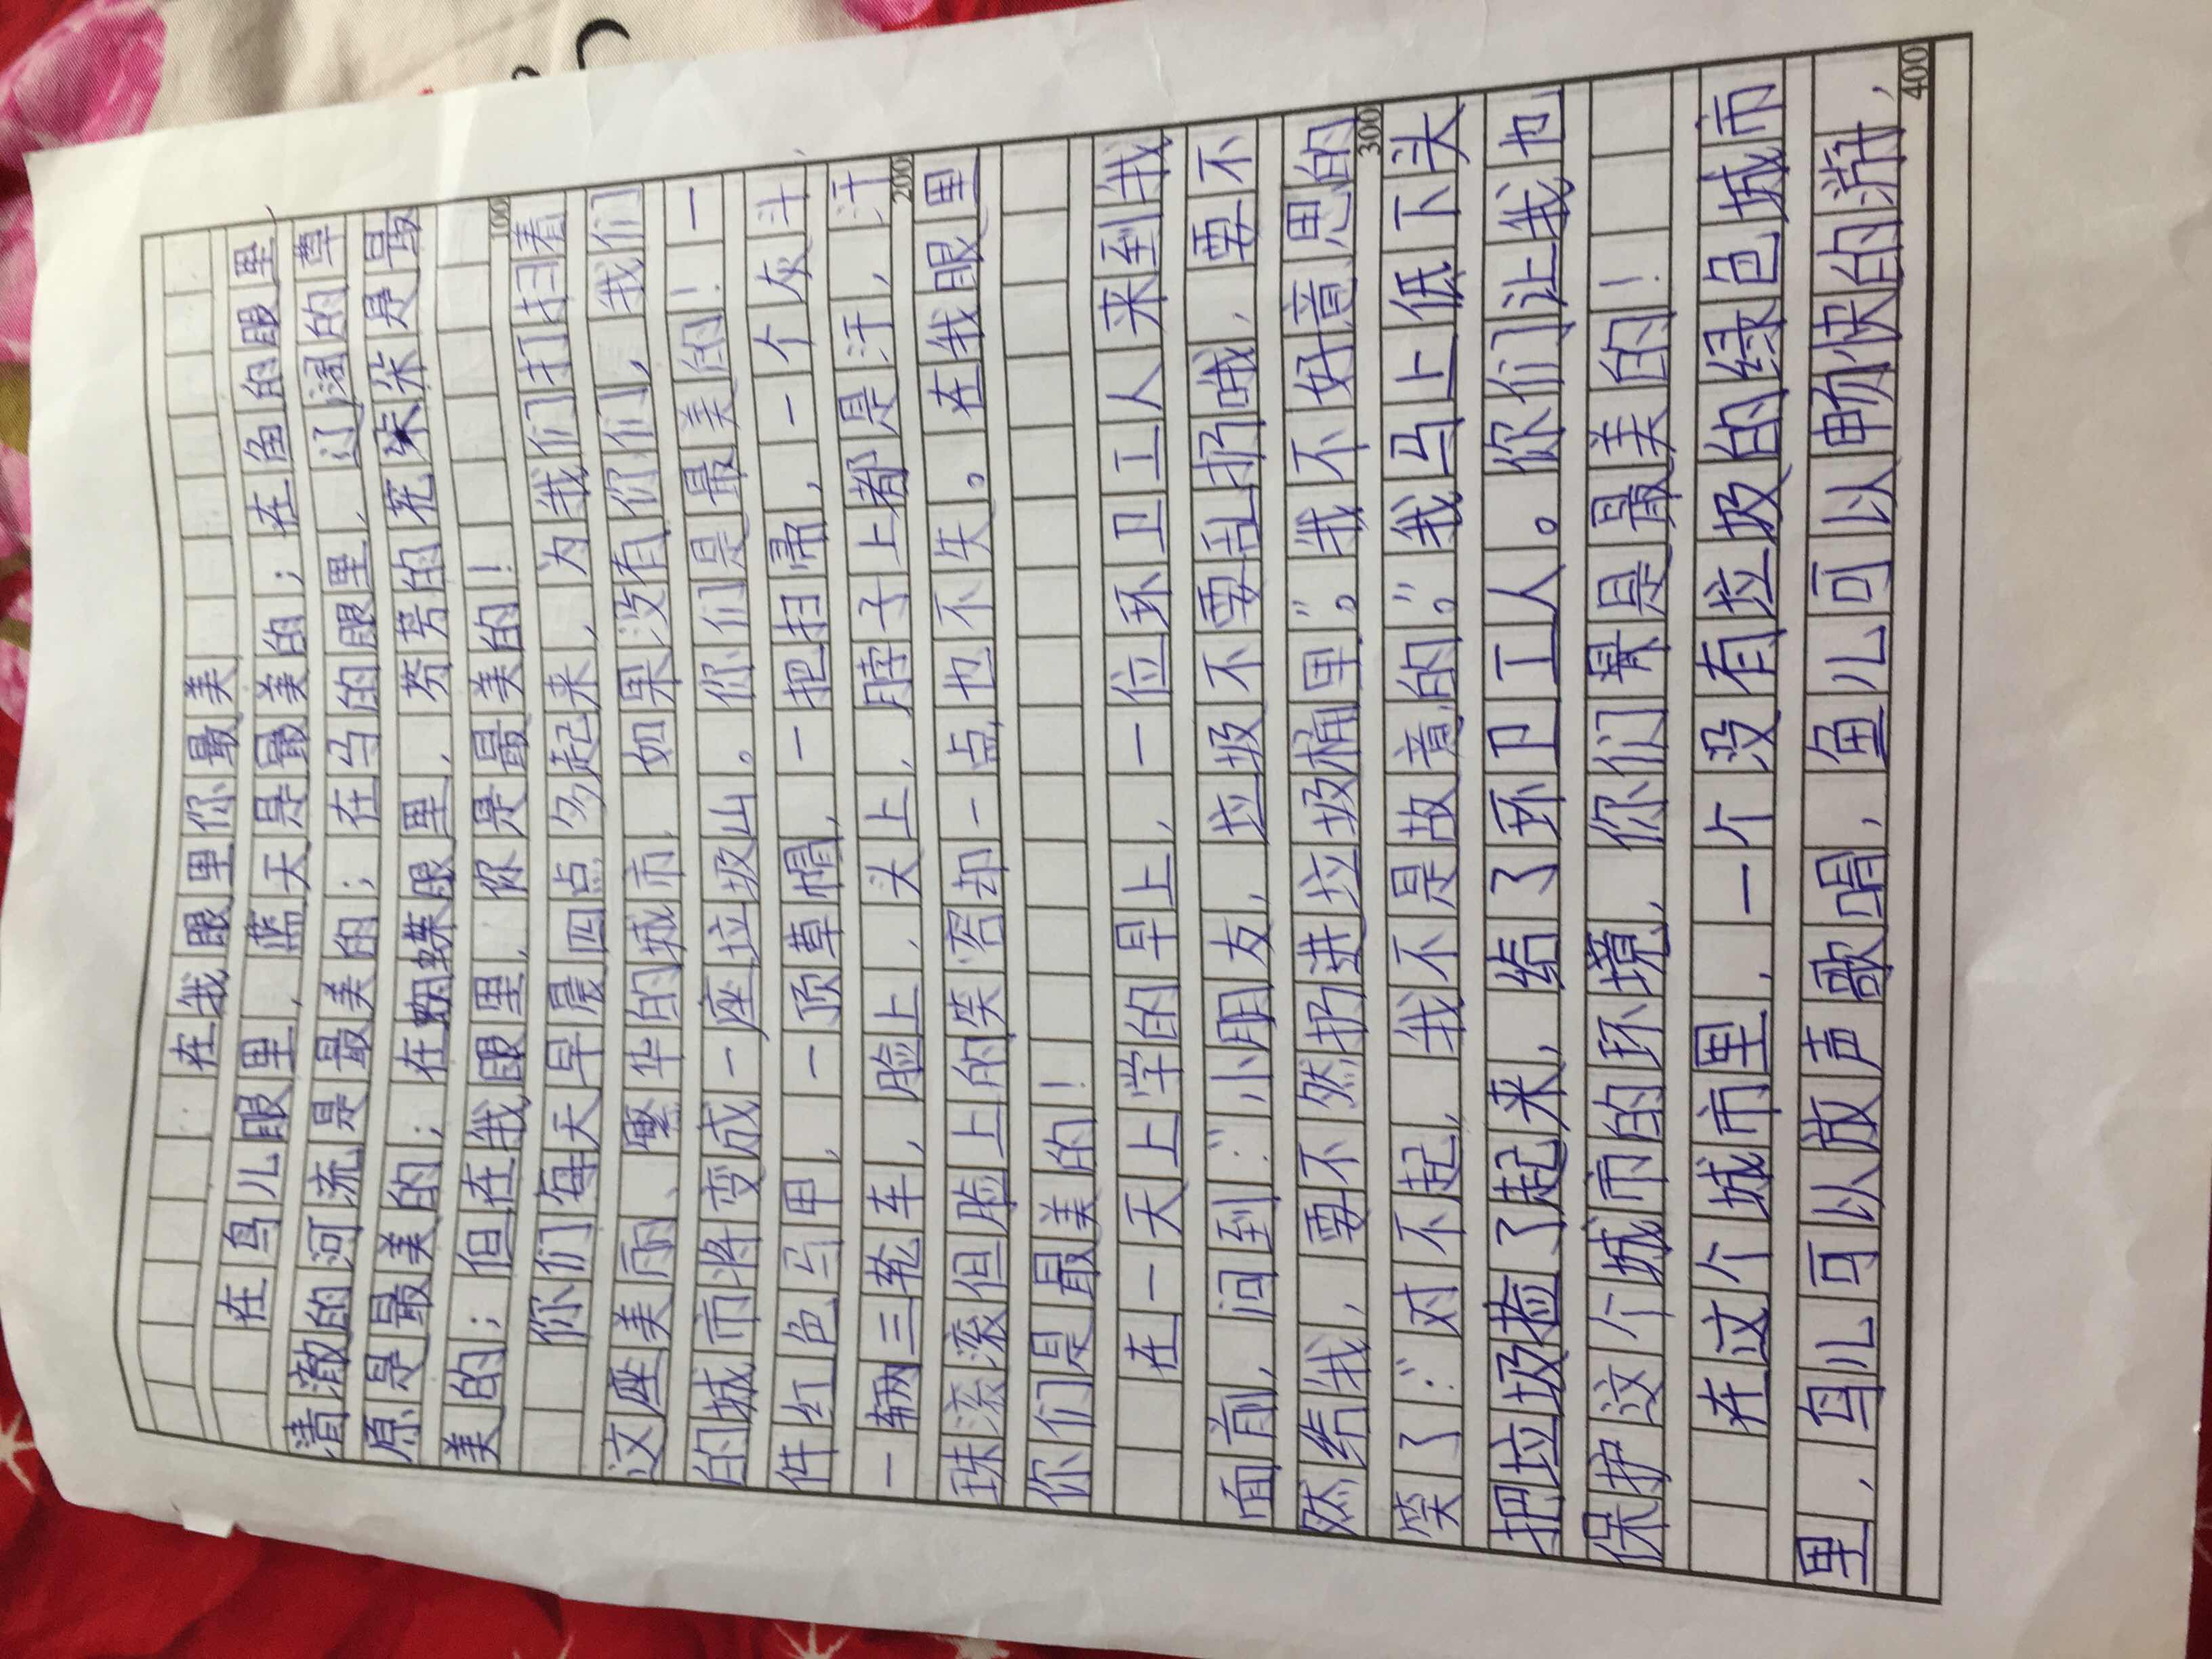 在我眼里你最美
在鸟儿眼里，蓝天是最美的；在鱼的眼里，
清澈的河流是最美的；在马的眼里，辽阔的草
原是最美的；在蝴蝶眼里，芬芳的花朵是最
美的；但在我眼里，你是最美的！
你们每天早晨四点多起来，为我们打扫着
这座美丽、繁华的城市，如果没有你们，我们
的城市将变成一座垃圾山。你们是最美的！一
件红色马甲，一顶草帽，一把扫帚，一个灰斗，
一辆三轮车，脸上、头上，脖子上都是汗，汗
珠滚滚但脸上的笑容却一点也不失。在我眼里
你们是最美的！
在一天上学的早上，一位环卫工人来到我
面前，问到：“小朋友，垃圾不要乱扔哦，要不
然给我，要不然扔进垃圾桶里”。我不好意思的
笑了：“对不起，我不是故意的。”我马上低下头
把垃圾捡了起来，给了环卫工人。你们让我也
保护这个城市的环境，你们是最美的！
在这个城市里，一个没有垃圾的绿色城市
里，鸟儿可以放声歌唱，鱼儿可以畅快的游，
100
200
300
400